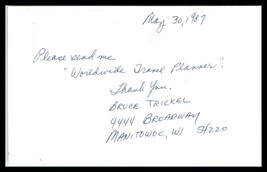 May 30, 1987
Please send me
"Worldwide Travel Planner".
Thank You.
BRUCE TRICKEL
4444 BROADWAY
MANITOWOC, WI 54220